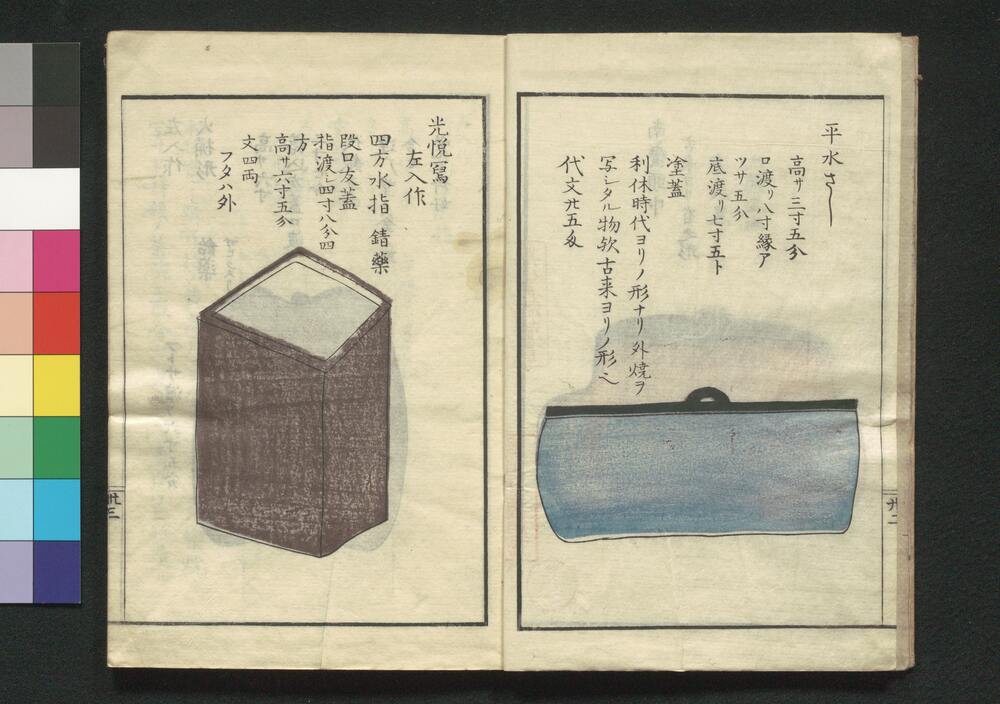 平水さし
高サ三寸五分
口渡リ八寸縁ア
ツサ五分
底渡リ七寸五ト
塗蓋
利休時代ヨリノ形ナリ外焼ヲ
写シタル物欤古来ヨリノ形也
代文廿五匁
廿二
光悦寫
左入作
四方水指 錆藥
段口友蓋
指渡シ四寸八分四
方
高サ六寸五分
文四両
フタハ外
廿三